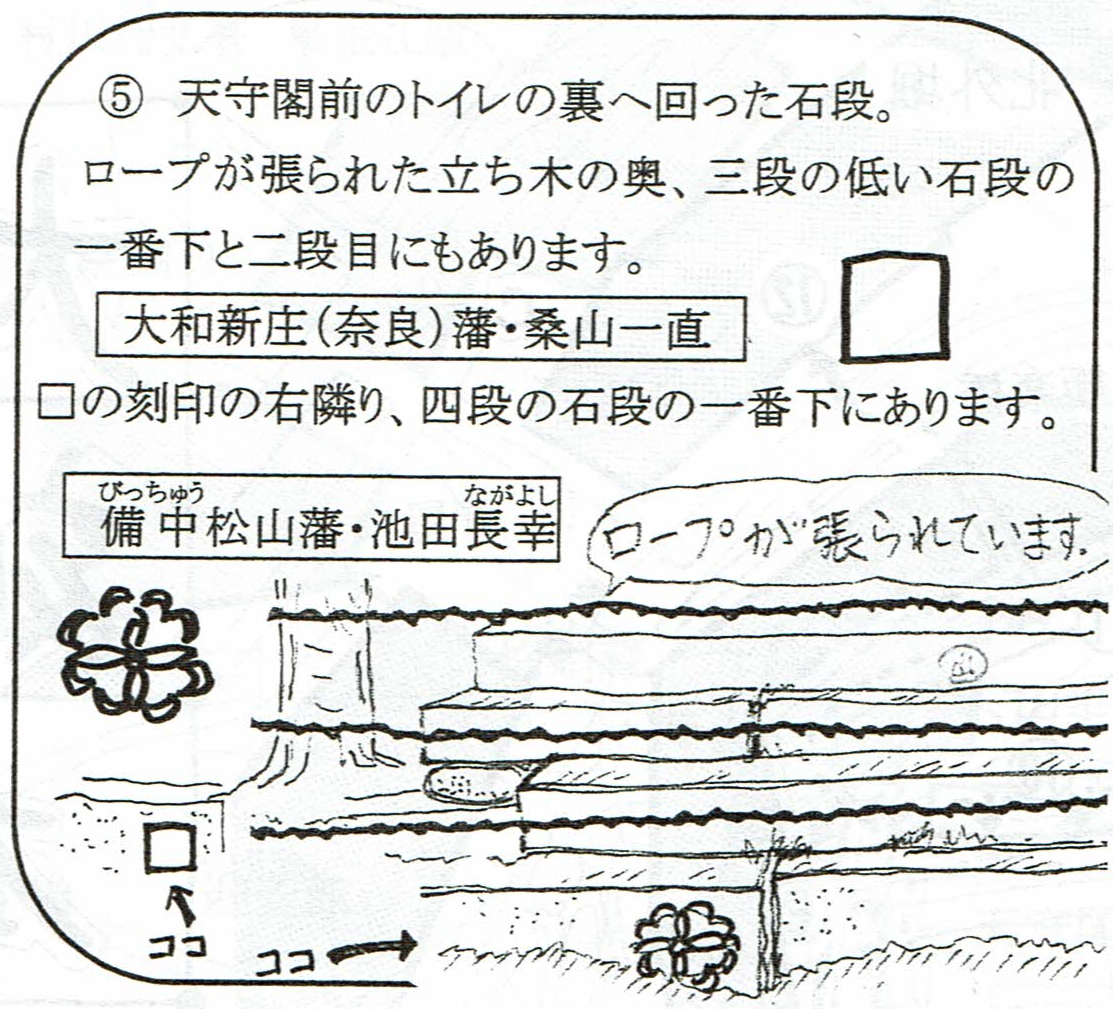 ⑤ 天守閣前のトイレの裏へ回った石段。
ロープが張られた立ち木の奥、三段の低い石段の
一番下と二段目にもあります。
大和新庄(奈良)藩・桑山一直
□の刻印の右隣り、四段の石段の一番下にあります。
びっちゅう ながよし
備中松山藩・池田長幸
ロープが張られています.
ココ
ココ